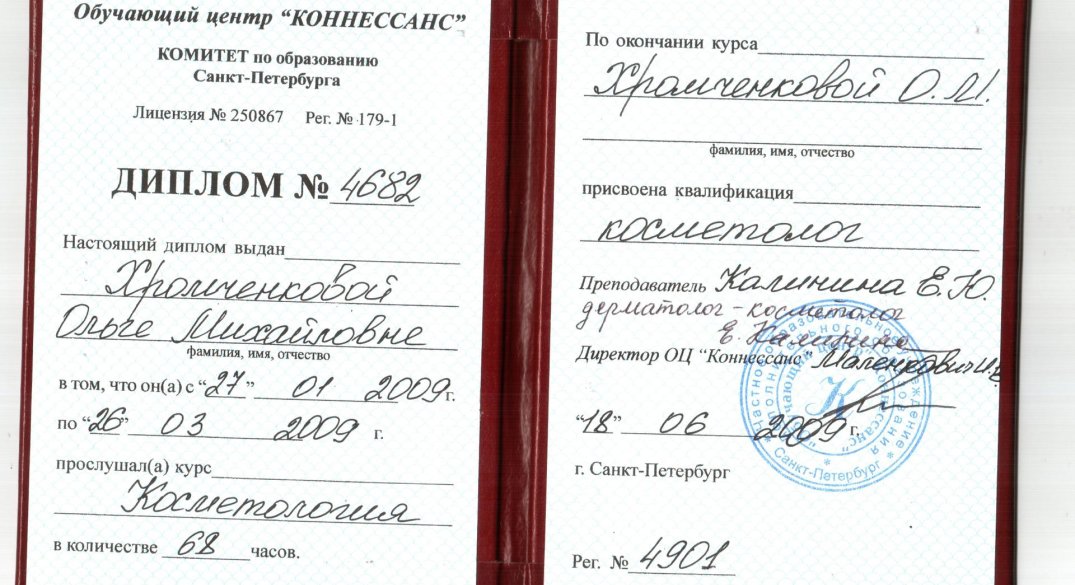 Обучающий центр “КОННЕССАНС”
КОМИТЕТ по образованию
Санкт-Петербурга
Лицензия № 250867 Рег. № 179-1
ДИПЛОМ № 4682
Настоящий диплом выдан
Хромченковой
Ольге Михайловне
фамилия, имя, отчество
в том, что он(а) с “27” 01 2009г.
по “26” 03 2009 г.
прослушал(а) курс
Косметология
в количестве 68 часов.
По окончании курса
Хромченковой О.М.
фамилия, имя, отчество
присвоена квалификация
косметолог
Преподаватель Калинина Е.Ю.
дерматолог-косметолог
Е. Калинина
Директор ОЦ “Коннессанс” Маленкович
“18” 06 2009 г.
г. Санкт-Петербург
Рег. № 4901
* Санкт-Петербург *